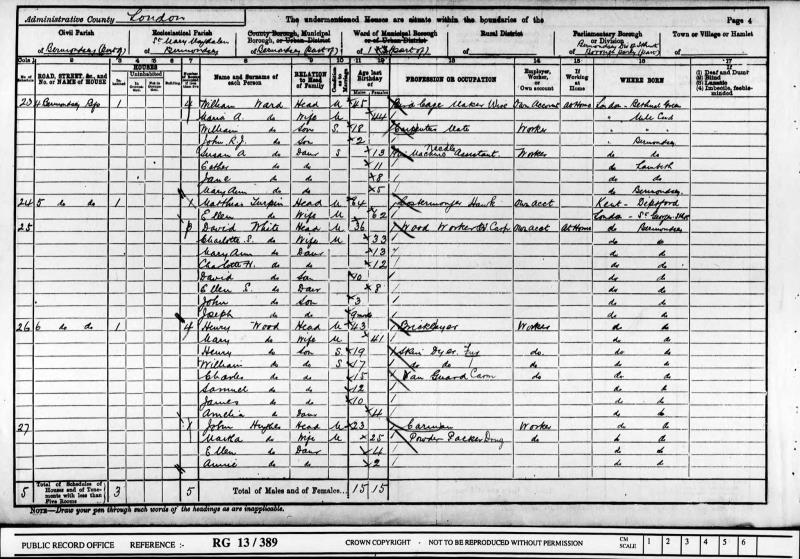 Administrative County London
The undermentioned Houses are situate within the boundaries of the
Page 4
Civil Parish
of Bermondsey (part of)
Ecclesiastical Parish
St Mary Magdalen
of Bermondsey
County Borough, Municipal Borough, or Urban District
of Bermondsey (part of)
Ward of Municipal Borough or of Urban District
of 1 (part of)
Rural District
of
Parliamentary Borough or Division
of
Town or Village or Hamlet
of
Cols. 1 2 3 4 5 6 7 8 9 10 11 12 13 14 15 16 17
No. of Schedule
ROAD, STREET, &c., and No. or NAME of HOUSE
HOUSES
Inhabited
Uninhabited
In Occupation
Not in Occupation
Building
Name and Surname of each Person
RELATION to Head of Family
Condition as to Marriage
Age last Birthday of
Males
Females
PROFESSION OR OCCUPATION
Employer, Worker, or Own account
If Working at Home
WHERE BORN
If
(1) Deaf and Dumb
(2) Blind
(3) Lunatic
(4) Imbecile, feeble-minded
23 4 Bermondsey 1 4 William Ward Head M 45 Bird Cage Maker Wire Own Account At Home London - Bethnal Green
Maria A. do Wife M 44 " Mile End
William do Son S 18 Carpenters Mate Worker " "
John R.J. do Son 2 " Bermondsey
Susan A do Daur S 13 Machine Needle Assistant Worker do do
Esther do do 11 do Lambeth
Jane do do 8 do do
Mary Ann do do 5 do Bermondsey
24 5 do do 1 1 Matthias Turpin Head M 64 Costermonger Hawk Own acct Kent - Deptford
Ellen do Wife M 62 London - St George
25 3 David White Head M 36 Wood Worker Carp Own acct At Home do Bermondsey
Charlotte S. do Wife M 33 do do
Mary Ann do Daur 13 do do
Charlotte H. do do 12 do do
David do Son 10 do do
Ellen S. do Daur 8 do do
John do Son 3 do do
Joseph do do 9 mos do do
26 6 do do 1 4 Henry Wood Head M 43 Bricklayer Worker do do
Mary do Wife M 41 do do
Henry do Son S 19 Skin Dyer Fur do. do do
William do do S 17 do do do do do
Charles do do 15 Van Guard Carm do do do
Samuel do do 12 do do
James do do 10 do do
Amelia do Daur 4 do do
27 1 John Hughes Head M 23 Carman Worker do do
Martha do Wife M 25 Powder Packer Drug do do do
Ellen do Daur 4 do do
Annie do do 2 do do
5 Total of Schedules of Houses and of Tenements with less than Five Rooms 3 5 Total of Males and of Females... 15 15
NOTE—Draw your pen through such words of the headings as are inapplicable.
PUBLIC RECORD OFFICE REFERENCE :- RG 13/389 CROWN COPYRIGHT - NOT TO BE REPRODUCED WITHOUT PERMISSION CM SCALE 1 2 3 4 5 6